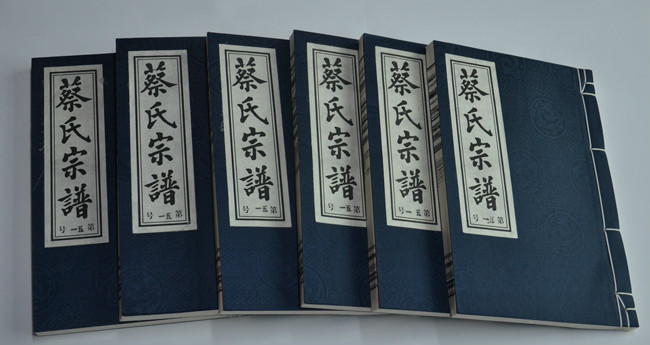 蔡氏宗譜
第五一号
蔡氏宗譜
第五一号
蔡氏宗譜
第五一号
蔡氏宗譜
第五一号
蔡氏宗譜
第五一号
蔡氏宗譜